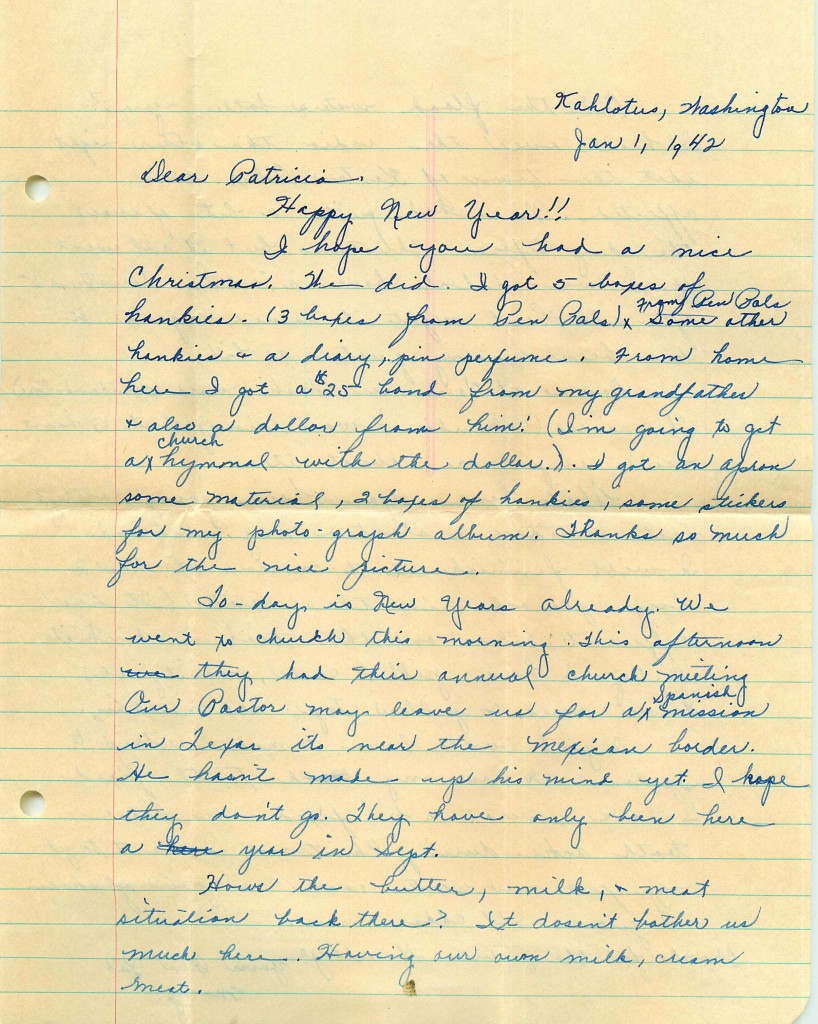 Kahlotus, Washington
Jan 1, 1942
Dear Patricia.
Happy New Year!!
I hope you had a nice
Christmas. The did. I got 5 boxes of
hankies. (3 boxes from Pen Pals) x Some other
From Pen Pals
hankies & a diary, pin perfume. From home
here I got a $25 bond from my grandfather
& also a dollar from him! (I'm going to get
church
a x hymnal with the dollar.). I got an apron
some material, 2 boxes of hankies, some stickers
for my photo-graph album. Thanks so much
for the nice picture.
To-day is New Years already. We
went to church this morning. This afternoon
they had their annual church meeting
Spanish
Our Pastor may leave us for a x mission
in Texas its near the Mexican border.
He hasn't made up his mind yet. I hope
they don't go. They have only been here
a here year in Sept.
Hows the butter, milk, & meat
situation back there? It dosen't bother us
much here. Having our own milk, cream
meat.